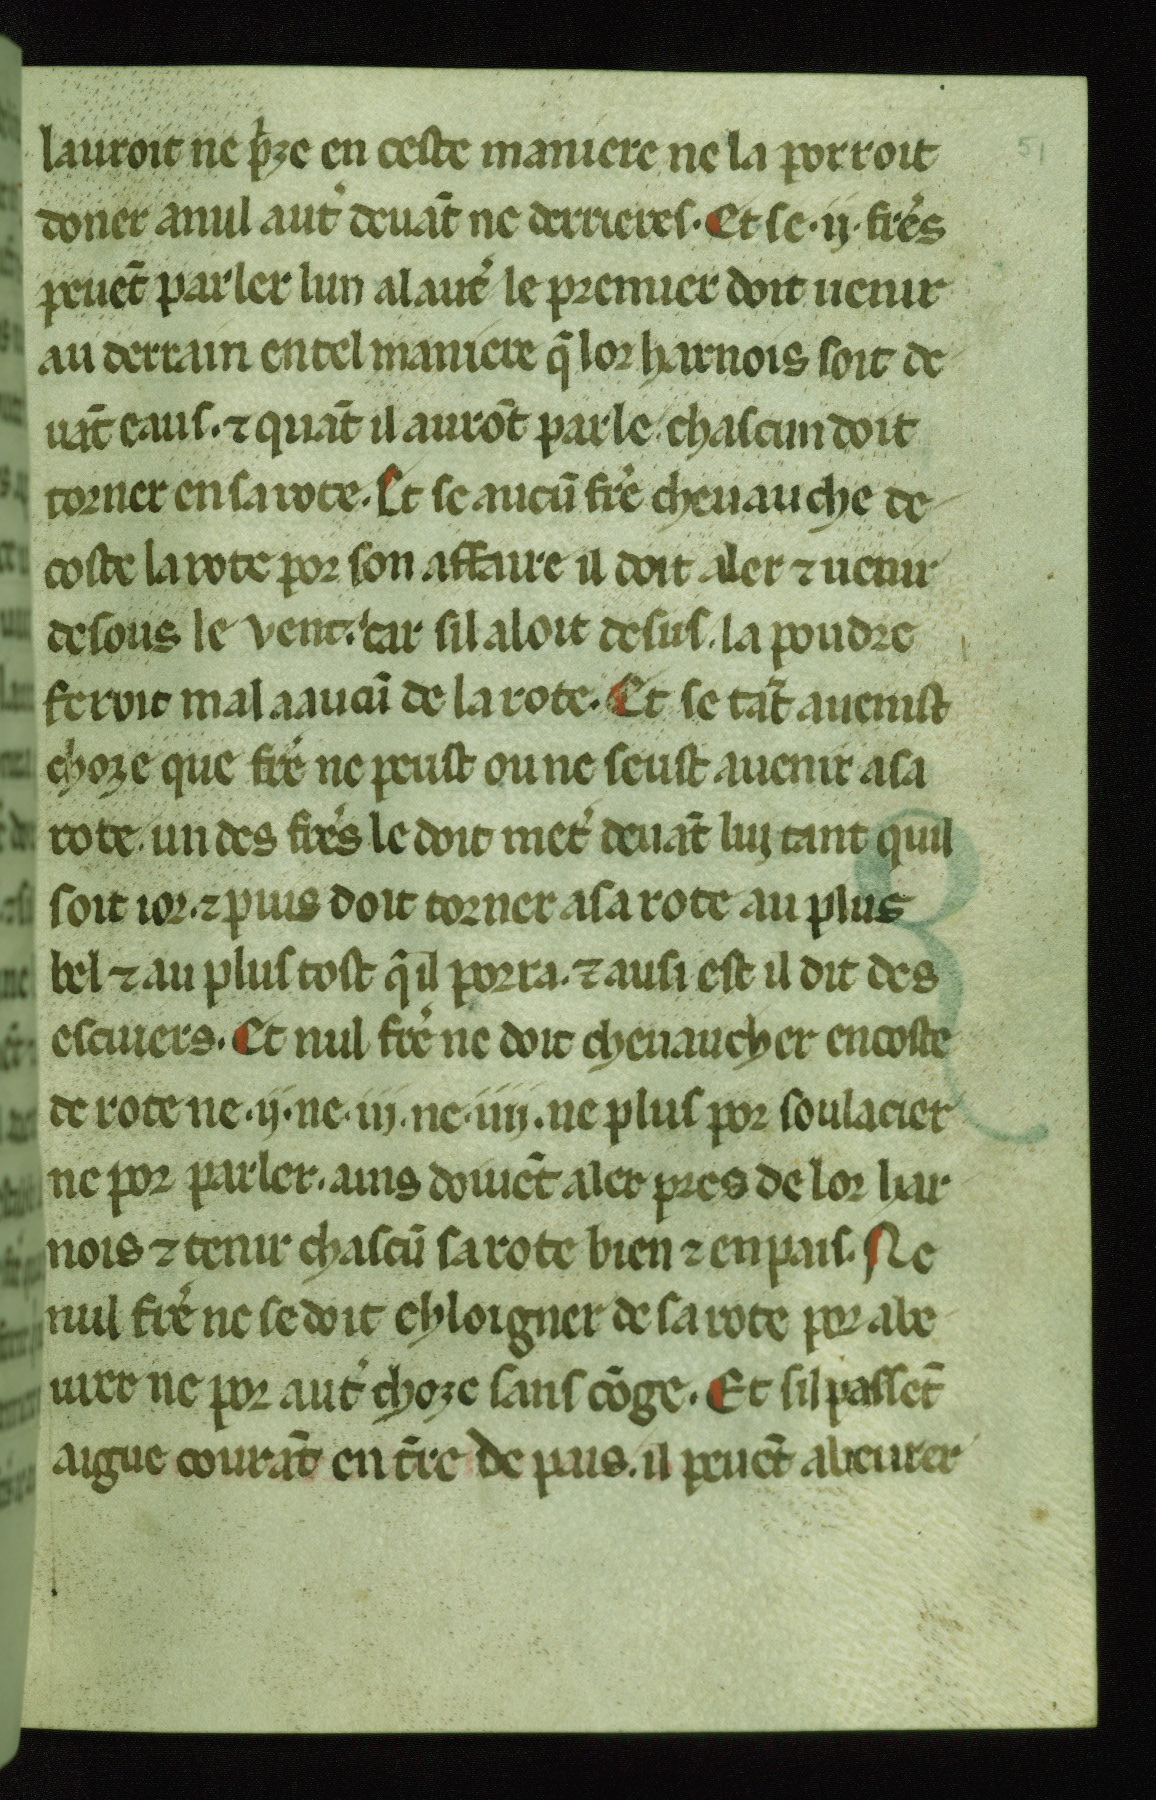 51
lauroit ne prze en ceste maniere ne la porroit
doner anul aut᾽ deuāt ne derrieres. Et se .ij. frēs
peuēt parler lun alaut᾽ le premier doit uenir
au derrain entel maniere q̄ lor harnois soit de
uāt eaus. ⁊ quāt il aurōt parle. chascun doit
torner ensarote. Et se aucū frē cheuauche de
coste larote por son affaire il doit aler ⁊ uenir
desous le vent. car sil aloit desus. la poudre
feroit mal aaucū de larote. Et se tāt auenist
choze que frē ne peust oune seust auenir asa
rote. un des frēs le doit met᾽ deuāt luy tant quil
soit ior. ⁊ puis doit torner asarote au plus
bel ⁊ au plustost q̄il porra. ⁊ ausi est il dit des
escuiers. Et nul frē ne doit cheuaucher encoste
de rote ne .ij. ne .iij. ne .iiij. ne plus por soulacier
ne por parler. ains doiuēt aler pres de lor har
nois ⁊ tenir chascū sarote bien ⁊ enpais. Ne
nul frē ne sedoit ehloigner de sarote por abe
urer ne por aut᾽ choze sans cōge. Et sil passēt
aigue courāt en t̄re de pais. il peuēt abeurer